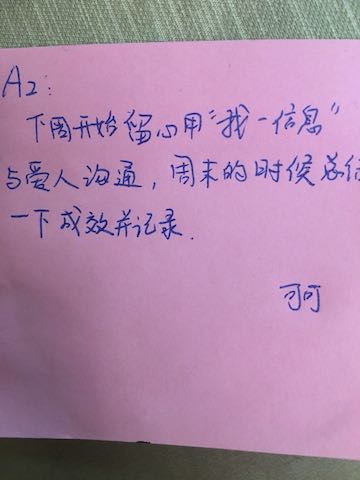 A2:
下周开始留心用“我一信息”
与爱人沟通，周末的时候总结
一下成效并记录.
可可